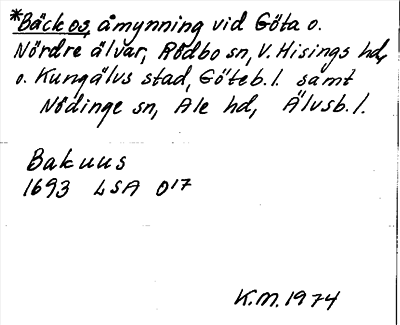 *Bäck os, åmynning vid Göta o.
Nördre älvar, Rödbo sn, V. Hisings hd,
o. Kungälvs stad, Göteb. l. samt
Nödinge sn, Ale hd, Älvsb. l.
Bakuus
1693 LSA O17
K.M. 1974